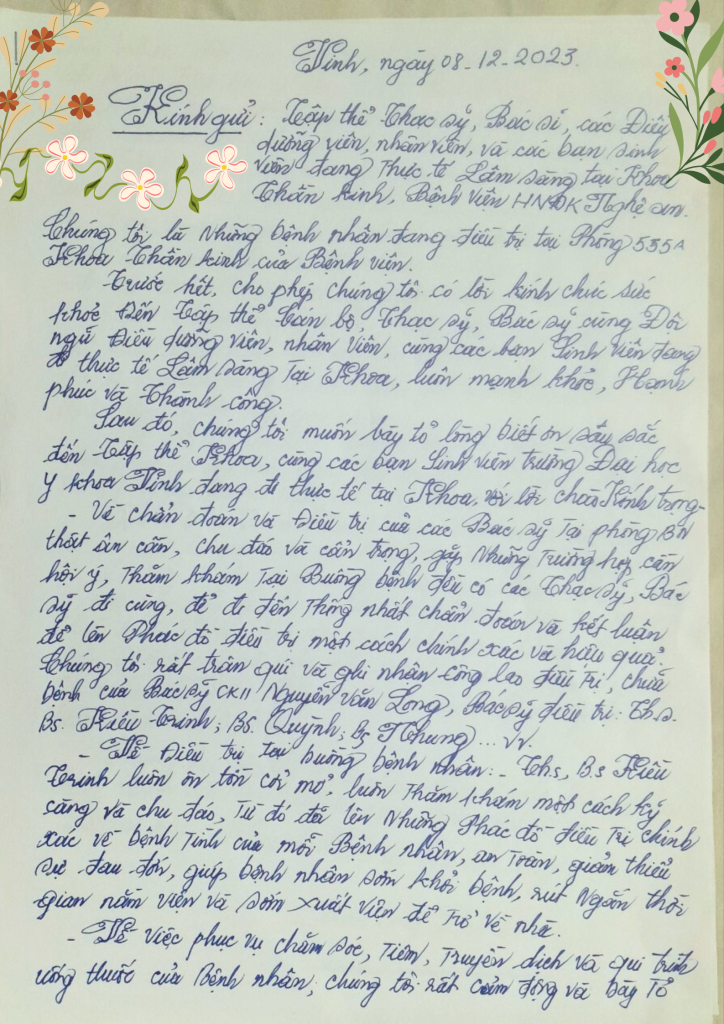 Vinh, ngày 08-12-2023.
Kính gửi: Tập thể Thạc sỹ, Bác sĩ, các Điều
dưỡng viên, nhân viên, và các bạn sinh
viên đang thực tế Lâm sàng tại Khoa
Thần kinh, Bệnh viện HNĐK Nghệ An.
Chúng tôi là những bệnh nhân đang điều trị tại Phòng 535A
Khoa Thần kinh của Bệnh viện.
Trước hết, cho phép chúng tôi có lời kính chúc sức
khoẻ đến Tập thể Cán bộ, Thạc sỹ, Bác sỹ cùng Đội
ngũ Điều dưỡng viên, nhân viên, cùng các bạn Sinh viên đang
đi thực tế Lâm sàng Tại Khoa, luôn mạnh khoẻ, Hạnh
phúc và Thành công.
Sau đó, chúng tôi muốn bày tỏ lòng biết ơn sâu sắc
đến Tập thể Khoa, cùng các bạn Sinh viên trường Đại học
Y khoa Vinh đang đi thực tế tại Khoa, với lời chào Kính trọng.
- Về chẩn đoán và Điều trị của các Bác sỹ Tại phòng BN
thật ân cần, chu đáo và cẩn trọng, gặp Những Trường hợp cần
hội ý, Thăm khám Tại Buồng bệnh đều có các Thạc sỹ, Bác
sỹ đi cùng, để đi đến Thống nhất chẩn đoán và kết luận
để lên Phác đồ điều trị một cách chính xác và hiệu quả.
Chúng tôi rất trân quí và ghi nhận công lao điều Trị, chữa
bệnh của Bác sỹ CKII Nguyễn Văn Long, Bác sỹ điều trị: Th.s.
BS. Kiều Trinh; BS. Quỳnh; BS Nhung ... vv.
- Về Điều trị tại buồng bệnh nhân: - Th.s, B.s Kiều
Trinh luôn ôn tồn cởi mở, luôn Thăm khám một cách kỹ
càng và chu đáo, Từ đó đã lên Những Phác đồ điều Trị chính
xác về bệnh Tình của mỗi Bệnh nhân, an Toàn, giảm thiểu
sự đau đớn, giúp bệnh nhân sớm khỏi bệnh, rút Ngắn thời
gian nằm viện và sớm xuất viện để Trở về nhà.
- Về việc phục vụ chăm sóc, Tiêm, Truyền dịch và qui trình
uống thuốc của Bệnh nhân; chúng tôi rất cảm động và bày Tỏ